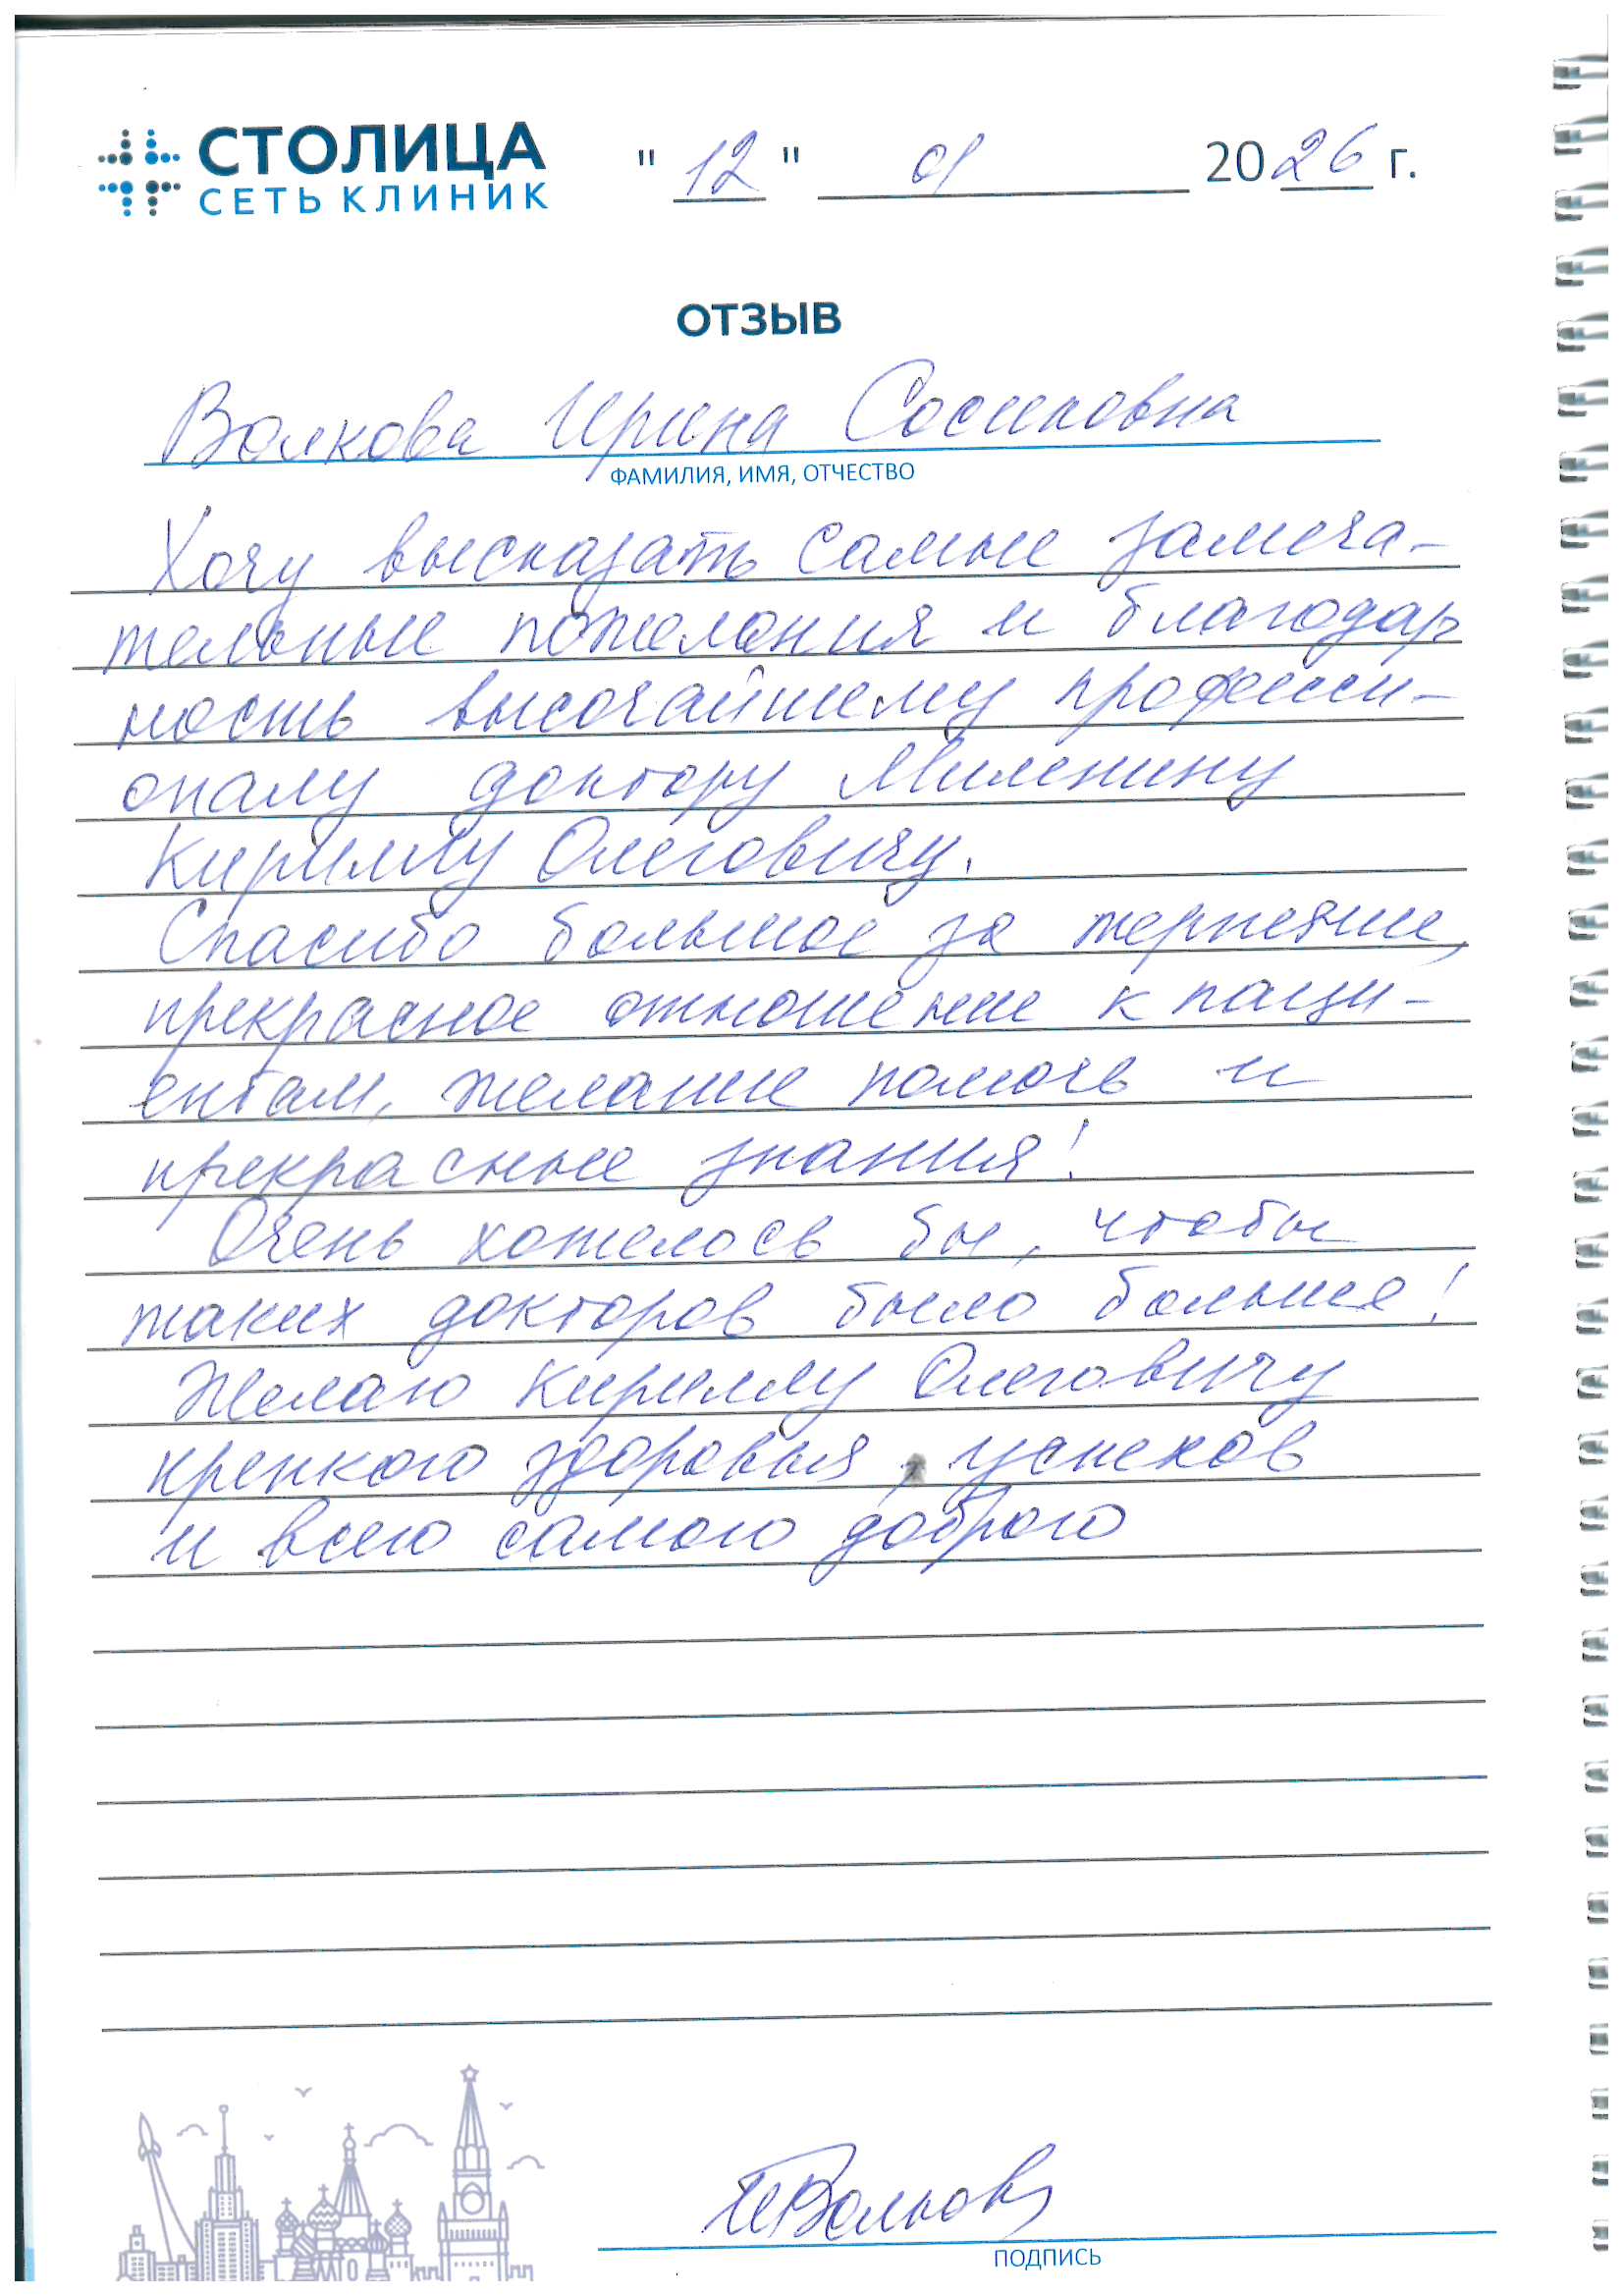 СТОЛИЦА
СЕТЬ КЛИНИК
"12" 01 2026 г.
ОТЗЫВ
Волкова Ирина Сосиковна
ФАМИЛИЯ, ИМЯ, ОТЧЕСТВО
Хочу высказать самые замеча-
тельные пожелания и благодар
ность высочайшему професси-
оналу доктору Миленину
Кириллу Олеговичу.
Спасибо большое за терпение,
прекрасное отношение к паци-
ентам, желание помочь и
прекрасные знания!
Очень хотелось бы, чтобы
таких докторов было больше!
Желаю Кириллу Олеговичу
крепкого здоровья, успехов
и всего самого доброго
ИВолкова
ПОДПИСЬ